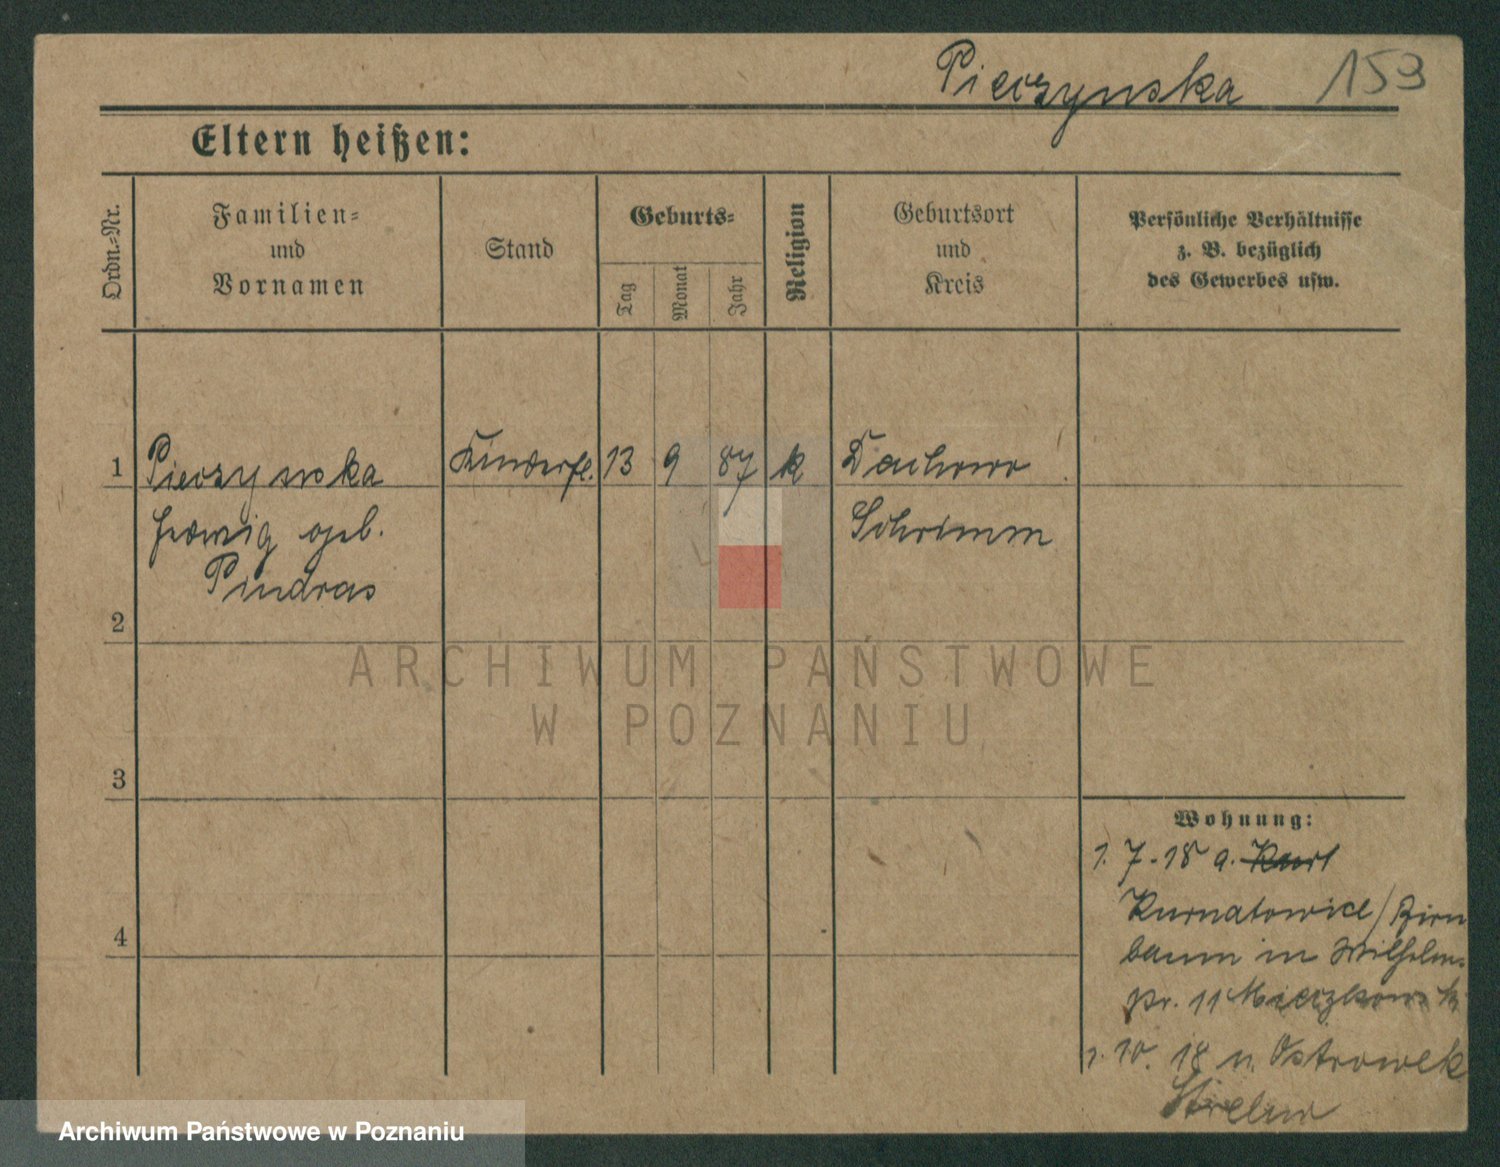 Pieczynska 159
Eltern heißen:
Ordn.=Nr.
Familien=
und
Vornamen
Stand
Geburts=
Tag
Monat
Jahr
Religion
Geburtsort
und
Kreis
Persönliche Verhältnisse
z. B. bezüglich
des Gewerbes usw.
1 Pieczynska Kinderfl. 13 9 87 k Dachowo
Hedwig geb. Schrimm
Pindras
2
3
4
Wohnung:
1. 7. 18 a. Kurt
Kurnatowice / Birn
baum in Wilhelm-
pr. 11 Mieczkowski
1. 10. 18 n. Ostrowek
Strelno
ARCHIWUM PAŃSTWOWE
W POZNANIU
Archiwum Państwowe w Poznaniu